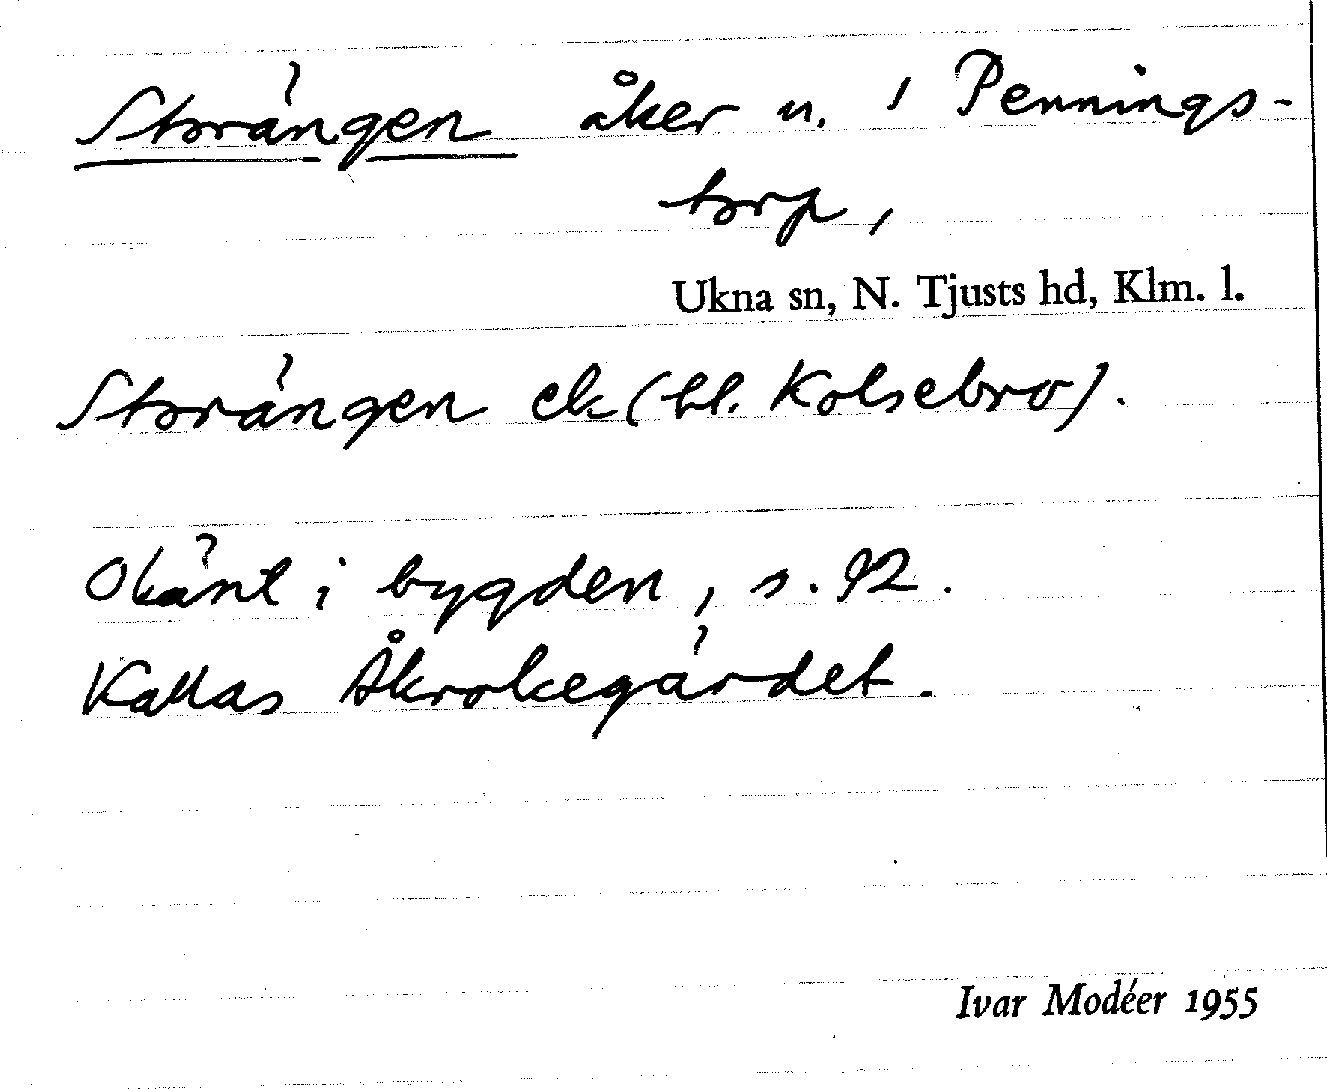 Storängen åker u. / Pennings-
torp,
Ukna sn, N. Tjusts hd, Klm. l.
Storängen ek (bl. Kolsebro).
Okänt i bygden, s. 92.
Kallas Åkrokegärdet.
Ivar Modéer 1955